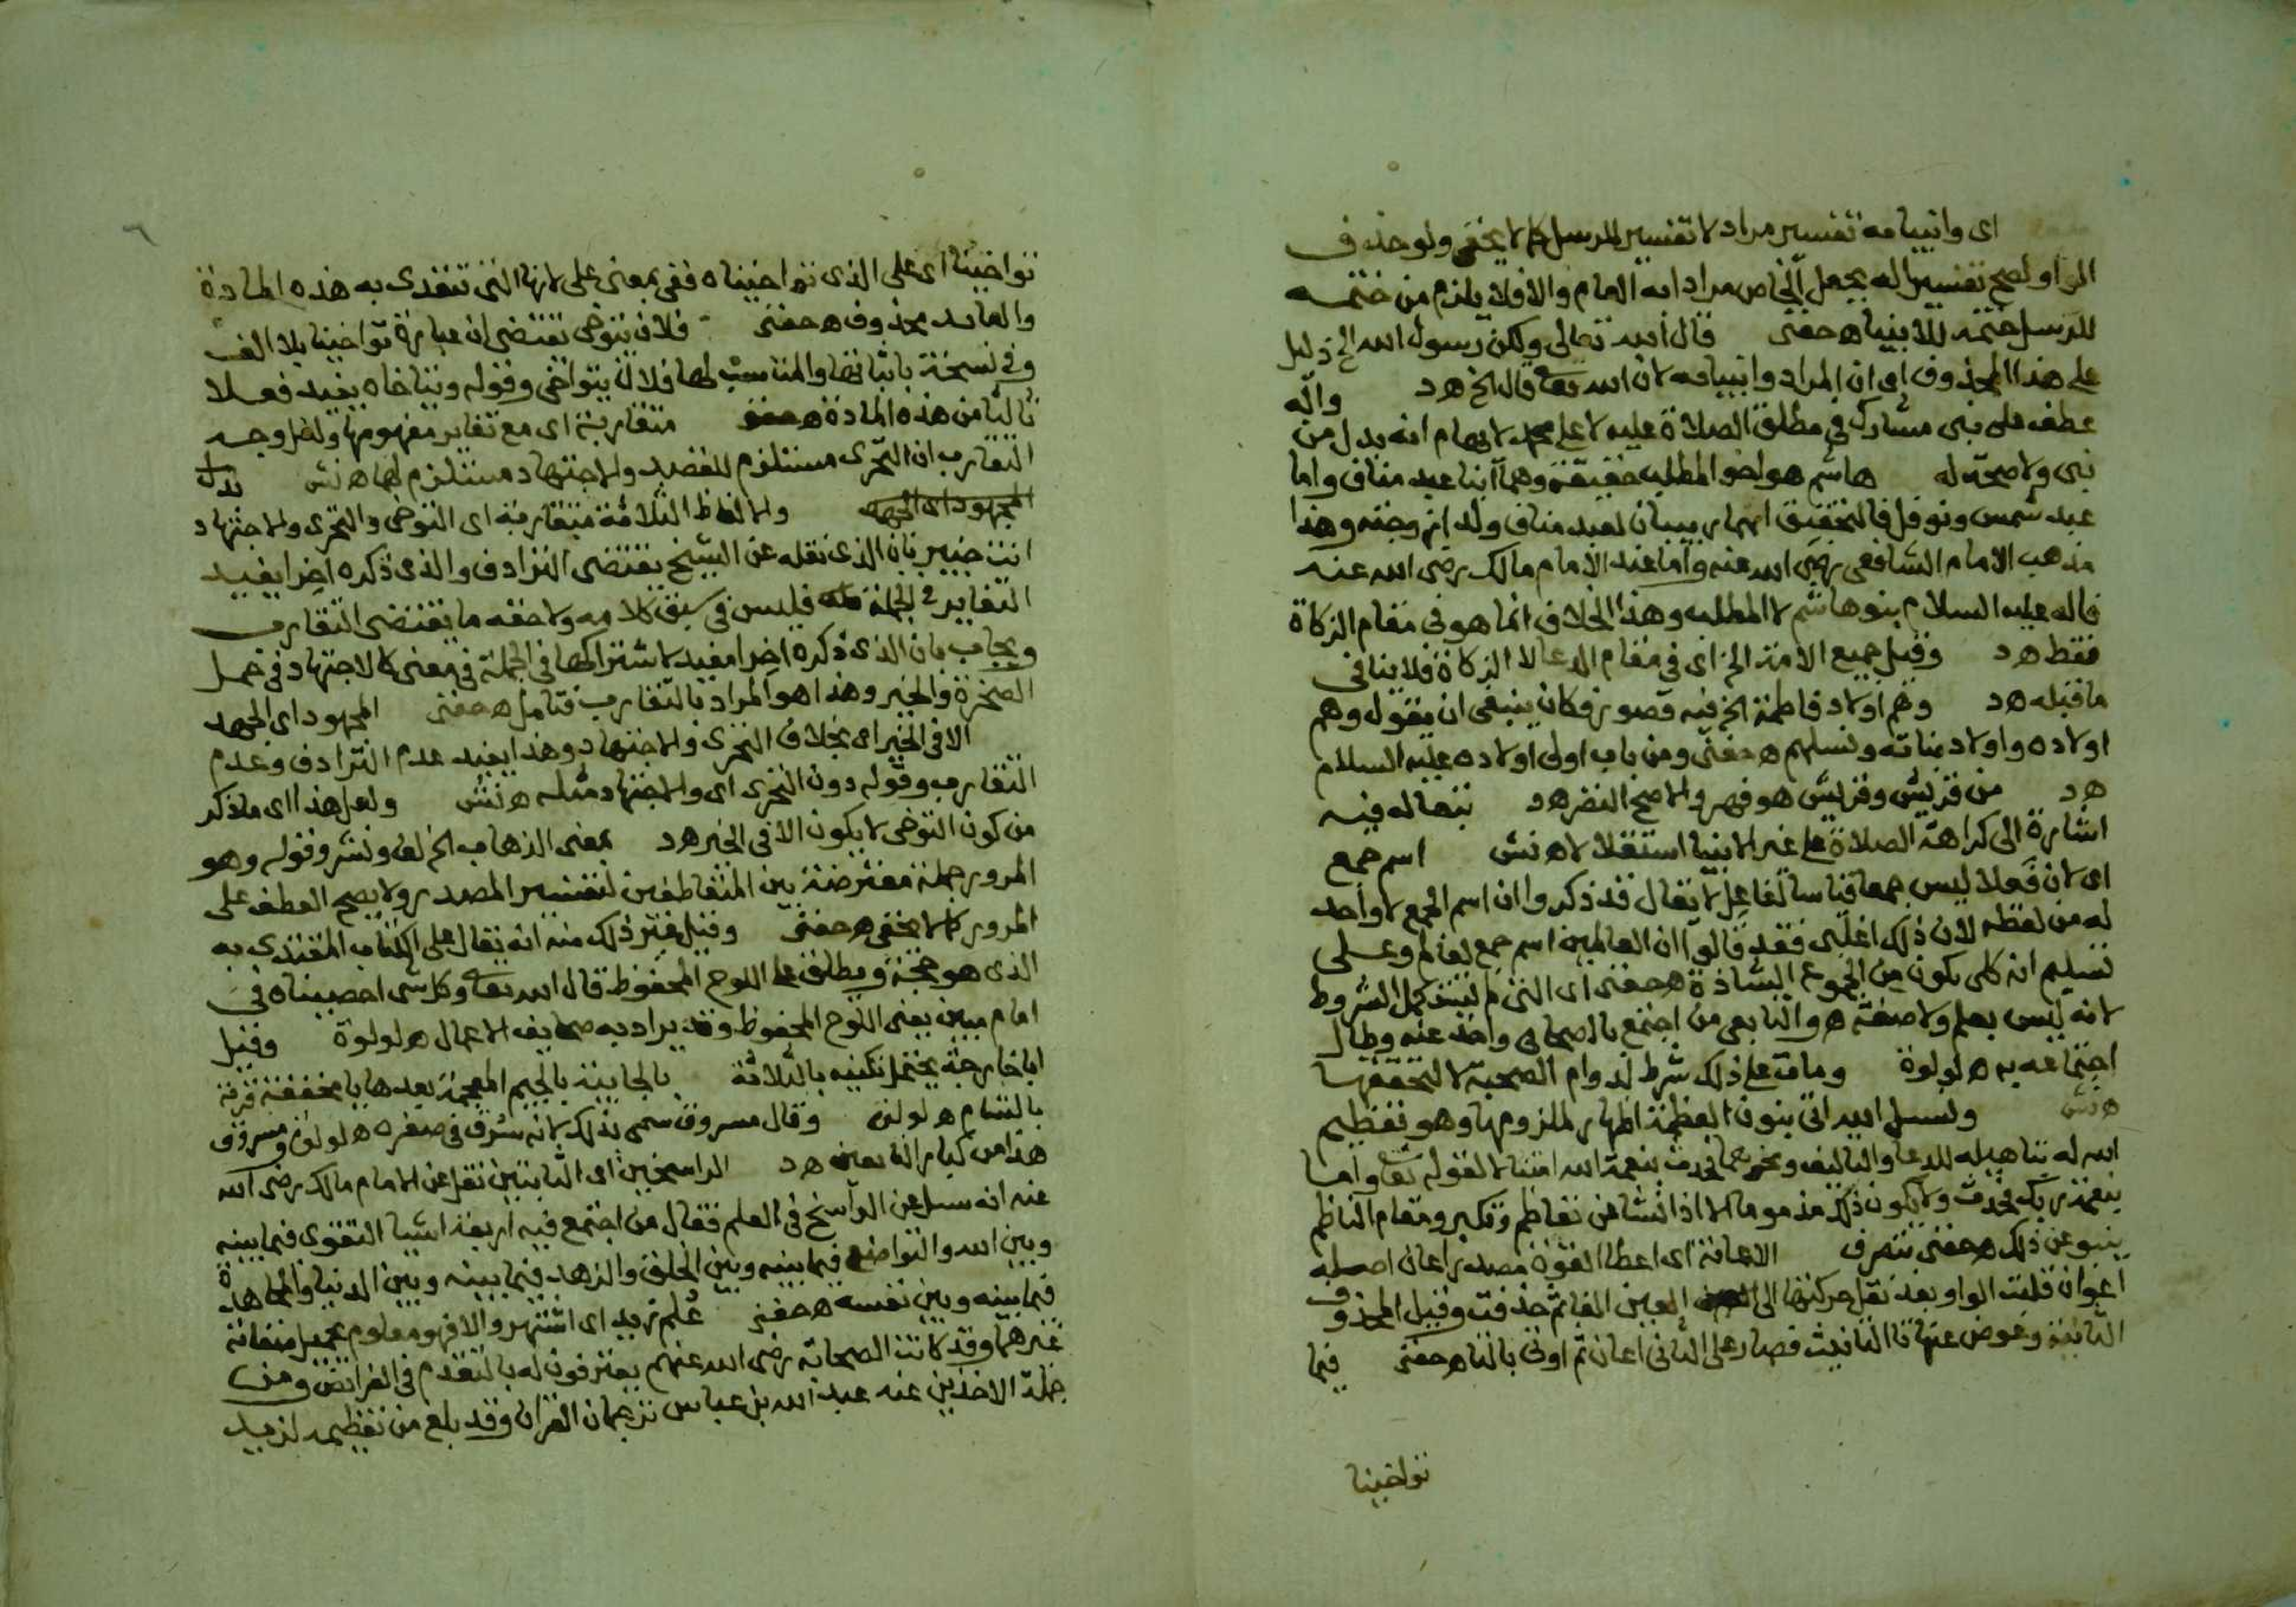 اى وانبيائه تفسير مراد لا تفسير للرسل كما لا يخفى ولو حذف
الراو لصح تفسيرا له بجعل الخاص مرادا به العام والا فلا يلزم من ختمه
للرسل ختمه للانبياء حفنى قال الله تعالى ولكن رسول الله الخ دليل
على هذا المحذوف اى ان المراد وانبيائه لان الله تعالى قال الخ هد وآله
عطف على نبى مشارك فى مطلق الصلاة عليه لا على محمد لايهام انه بدل من
نبى ولا صحة له هاشم هو اخو المطلب حقيقة وهما ابنا عبد مناف واما
عبد شمس ونوفل فالتحقيق انهما ربيبان لعبد مناف ولدا زوجته وهذا
مذهب الامام الشافعى رضى الله عنه واما عند الامام مالك رضى الله عنه
فاله عليه السلام بنو هاشم لا المطلب وهذا الخلاف انما هو فى مقام الزكاة
فقط هد وقيل جميع الامة الخ اى فى مقام الدعا لا الزكاة فلا ينافى
ما قبله هد وهم اولاد فاطمة الخ فيه قصور فكان ينبغى ان يقول وهم
اولاده واولاد بناته ونسلهم ه حفنى ومن باب اولى اولاده عليه السلام
هد من قريش وقريش هو فهر والاصح النضر هد تبعا له فيه
اشارة الى كراهة الصلاة على غير الانبيا استقلالا ه نش اسم جمع
اى لان فعلا ليس جمعا قياسا لفاعل لا يقال قد ذكروا ان اسم الجمع لا واحد
له من لفظه لان ذلك اغلبى فقد قالوا ان العالمين اسم جمع لعالم وعلى
تسليم انه كلى يكون من الجموع الشاذة ه حفنى اى التى لم تستكمل الشروط
لانه ليس بعلم ولا صفة ه والتابعى من اجتمع بالصحابى واخذ عنه وطال
اجتماعه به ه لولوة ومات على ذلك شرط لدوام الصحبة لا لتحققها
ه نش ونسال الله اتى بنون العظمة اظهار لملزومها وهو تعظيم
الله له بتاهيله للدعا والتاليف ونحوهما تحدثا بنعمة الله امتثالا لقوله تعا واما
بنعمة ربك فحدث ولا يكون ذلك مذموما الا اذا نشا من تعاظم وتكبر ومقام الناظم
ينبو عن ذلك ه حفنى بتصرف الاعانة اى اعطا القوة مصدر اعان اصله
اعوان قلبت الواو بعد نقل حركتها الى العين الفا ثم حذفت وقيل المحذوف
الثانية وعوض عنها تا التانيث فصار على الثانى اعان ثم اوتى بالتا ه حفنى فيما
تواخينا
٦
تواخينا اى على الذى تواخيناه ففى بمعنى على لانها التى تتعدى به هذه المادة
والعايد محذوف ه حفنى فلان يتوخى تقتضى ان عبارة تواخينا بلا الف
وفى نسخة باثباتها والمناسب لها فلان يتواخى وقوله ويتاخاه يفيد فعلا
ثالثا من هذه المادة ه حفنى متقاربة اى مع تغاير مفهومها ولعل وجه
التقارب ان التحرى مستلزم للقصد والاجتهاد مستلزم لهما ه نش بذل
المجهود اى الجهد والالفاظ الثلاثة متقاربة اى التوخى والتحرى والاجتهاد
انت خبير بان الذى نقله عن الشيخ يقتضى الترادف والذى ذكره اخرا يفيد
التغاير فى الجملة فليس فى سبق كلامه ولاحقه ما يقتضى التقارب
ويجاب بان الذى ذكره اخرا مفيد لاشتراكها فى الجملة فى معنى كالاجتهاد فى حمل
الصخرة والخير وهذا هو المراد بالتقارب فتامل ه حفنى المجهود اى الجهد
الا فى الخير اى بخلاف التحرى والاجتهاد وهذا يفيد عدم الترادف وعدم
التقارب وقوله دون التحرى اى والاجتهاد مثله ه نش ولعل هذا اى ما ذكر
من كون التوخى لا يكون الا فى الخير هد بمعنى الذهاب الخ لف ونشر وقوله وهو
المرور جملة معترضة بين المتعاطفين لتفسير المصدر ولا يصح العطف على
المرور كما لا يخفى ه حفنى وقيل غير ذلك منه انه يقال على الكتاب المقتدى به
الذى هو حجة ويطلق على اللوح المحفوظ قال الله تعا وكل شى احصيناه فى
امام مبين يعنى اللوح المحفوظ وقد يراد به صحايف الاعمال ه لولوة وقيل
ابا خارجة يحتمل تكنيه بالثلاثة بالجابية بالجيم المعجمة بعدها با مخففة قرية
بالشام ه لولوة وقال مسروق سمى بذلك لانه سرق فى صغره ه لولوة ومسروق
هذا من كبار التابعين هد الراسخين اى الثابتين نقل عن الامام مالك رضى الله
عنه انه سيل عن الراسخ فى العلم فقال من اجتمع فيه اربعة اشيا التقوى فيما بينه
وبين الله والتواضع فيما بينه وبين الخلق والزهد فيما بينه وبين الدنيا والمجاهدة
فيما بينه وبين نفسه ه حفنى علم زيد اى اشتهر والا فهو معلوم بجميل صفاته
غيرهما وقد كانت الصحابة رضى الله عنهم يعترفون له بالتقدم فى الفرائض ومن
جملة الاخذين عنه عبد الله بن عباس ترجمان القران وقد بلغ من تعظيمه لزيد